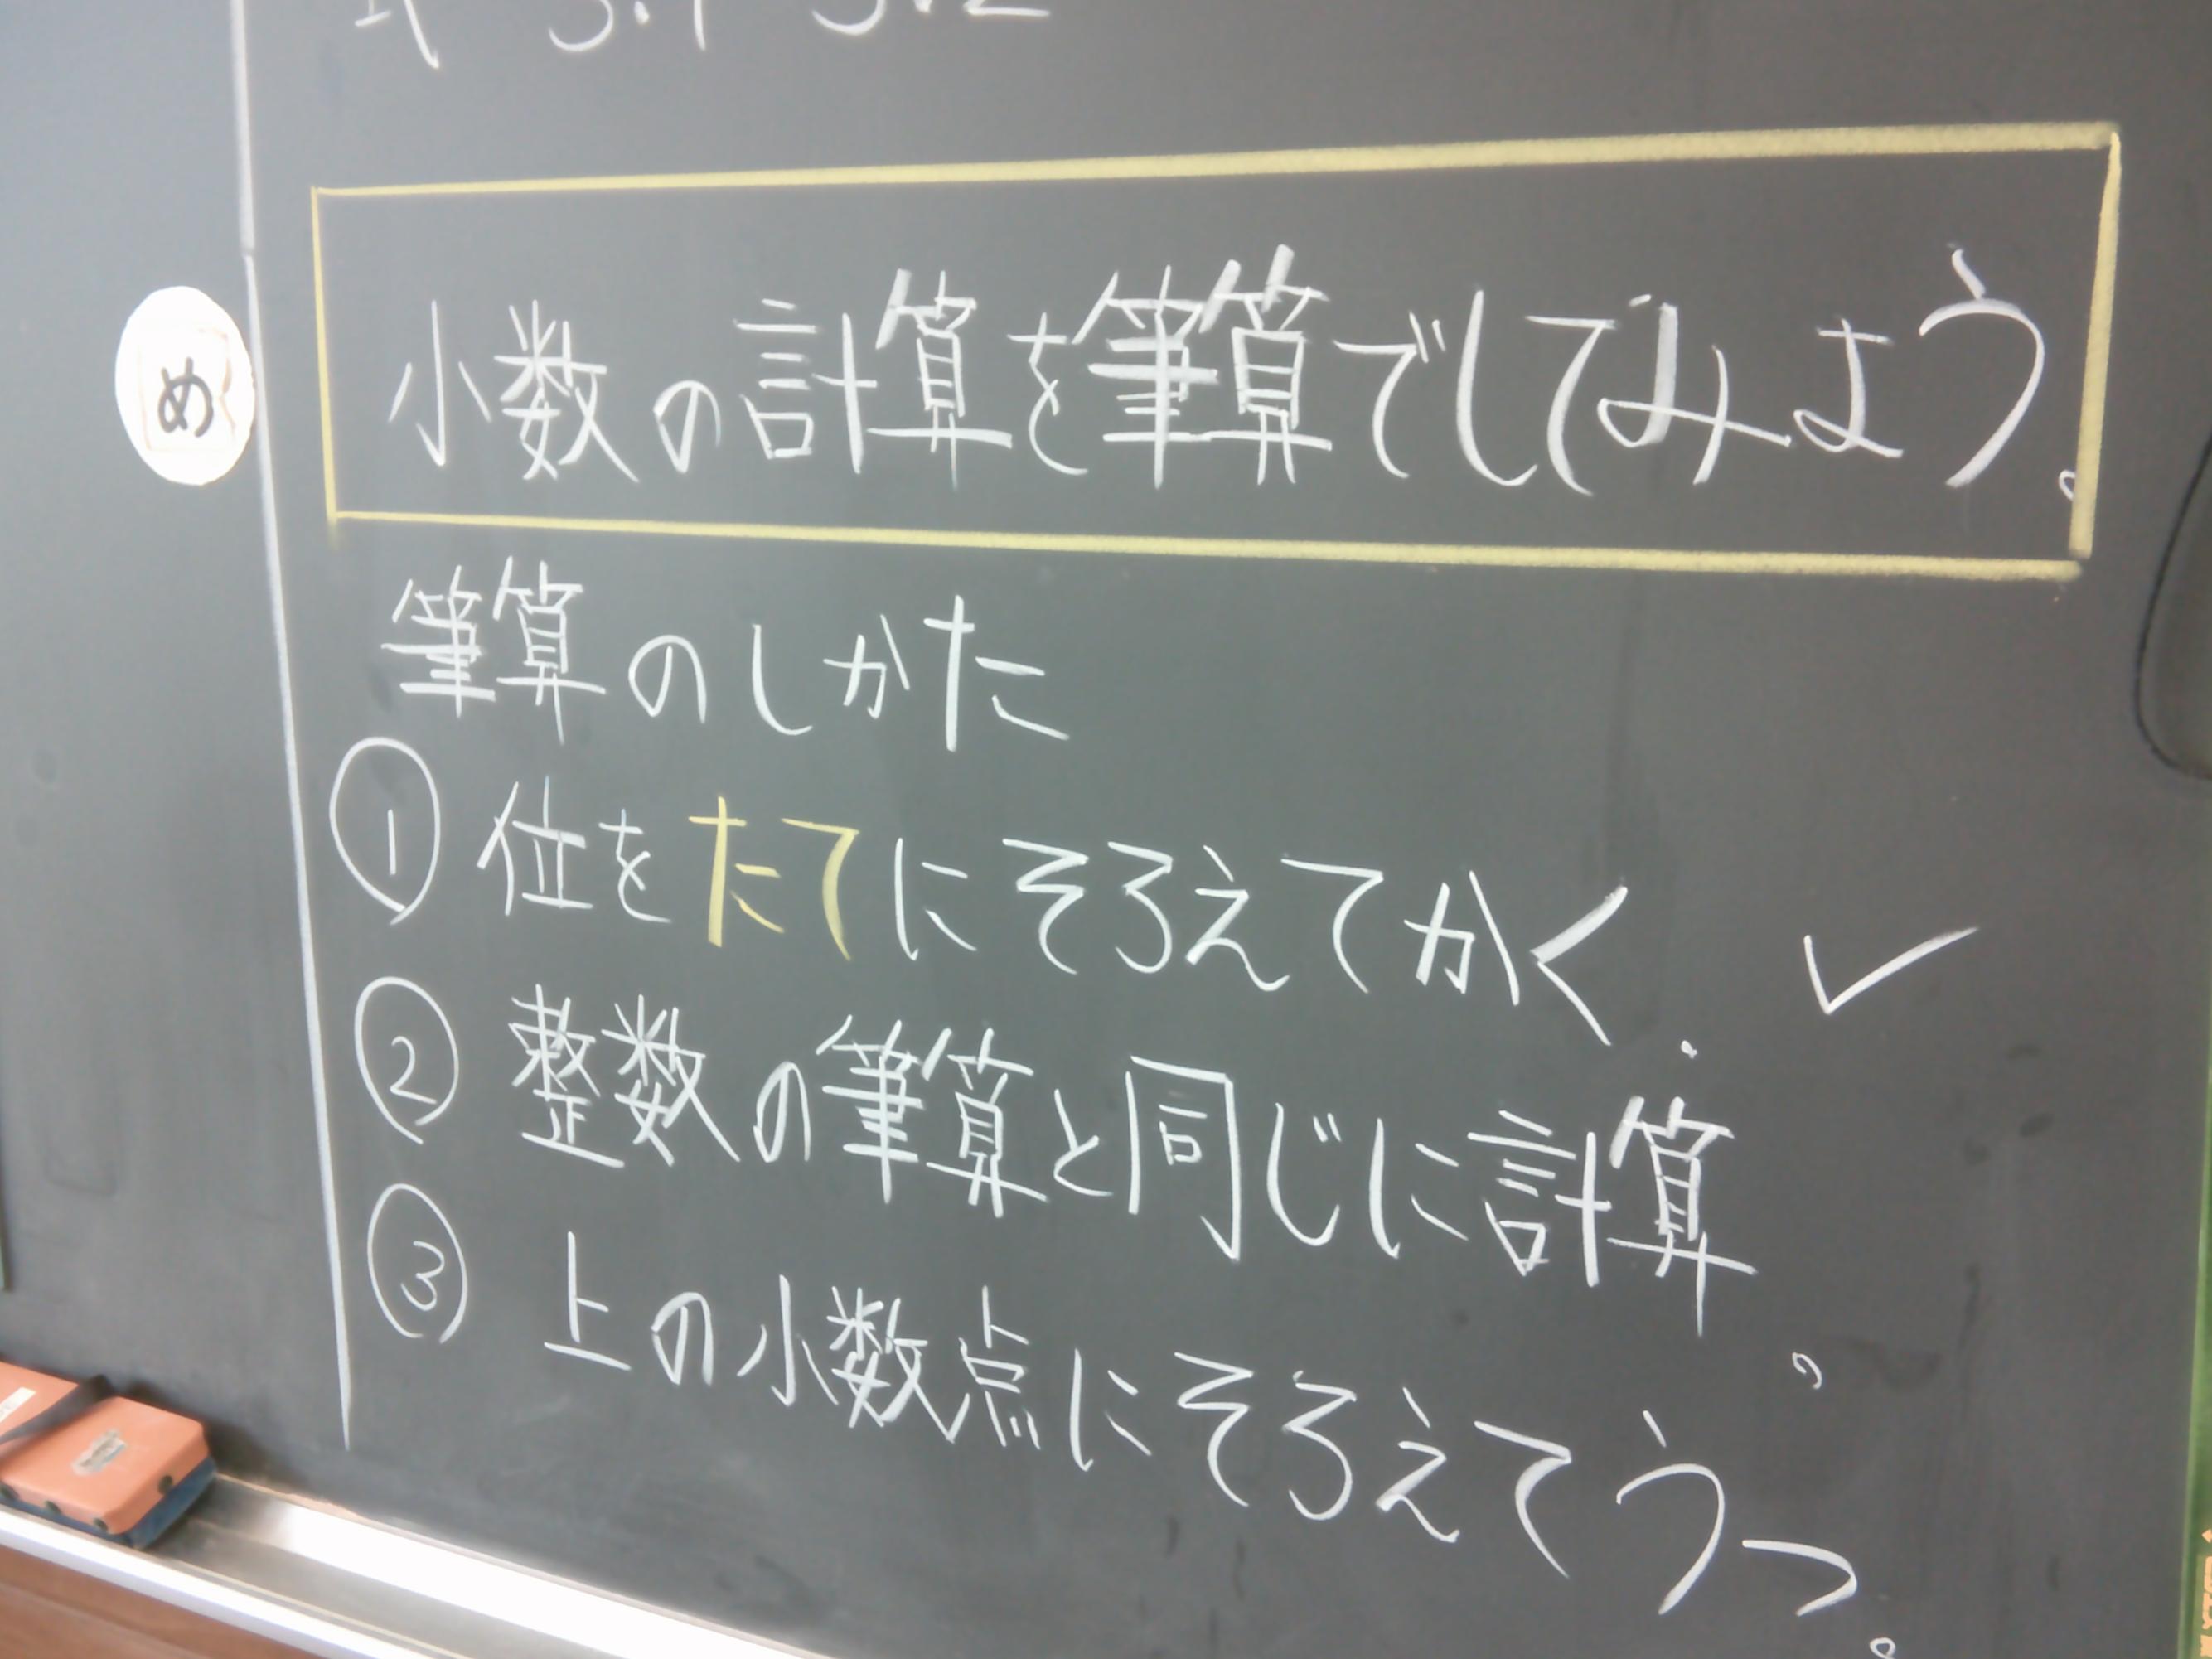 め
小数の計算を筆算でしてみよう。
筆算のしかた
① 位をたてにそろえてかく。 ✓
② 整数の筆算と同じに計算。
③ 上の小数点にそろえてうつ。